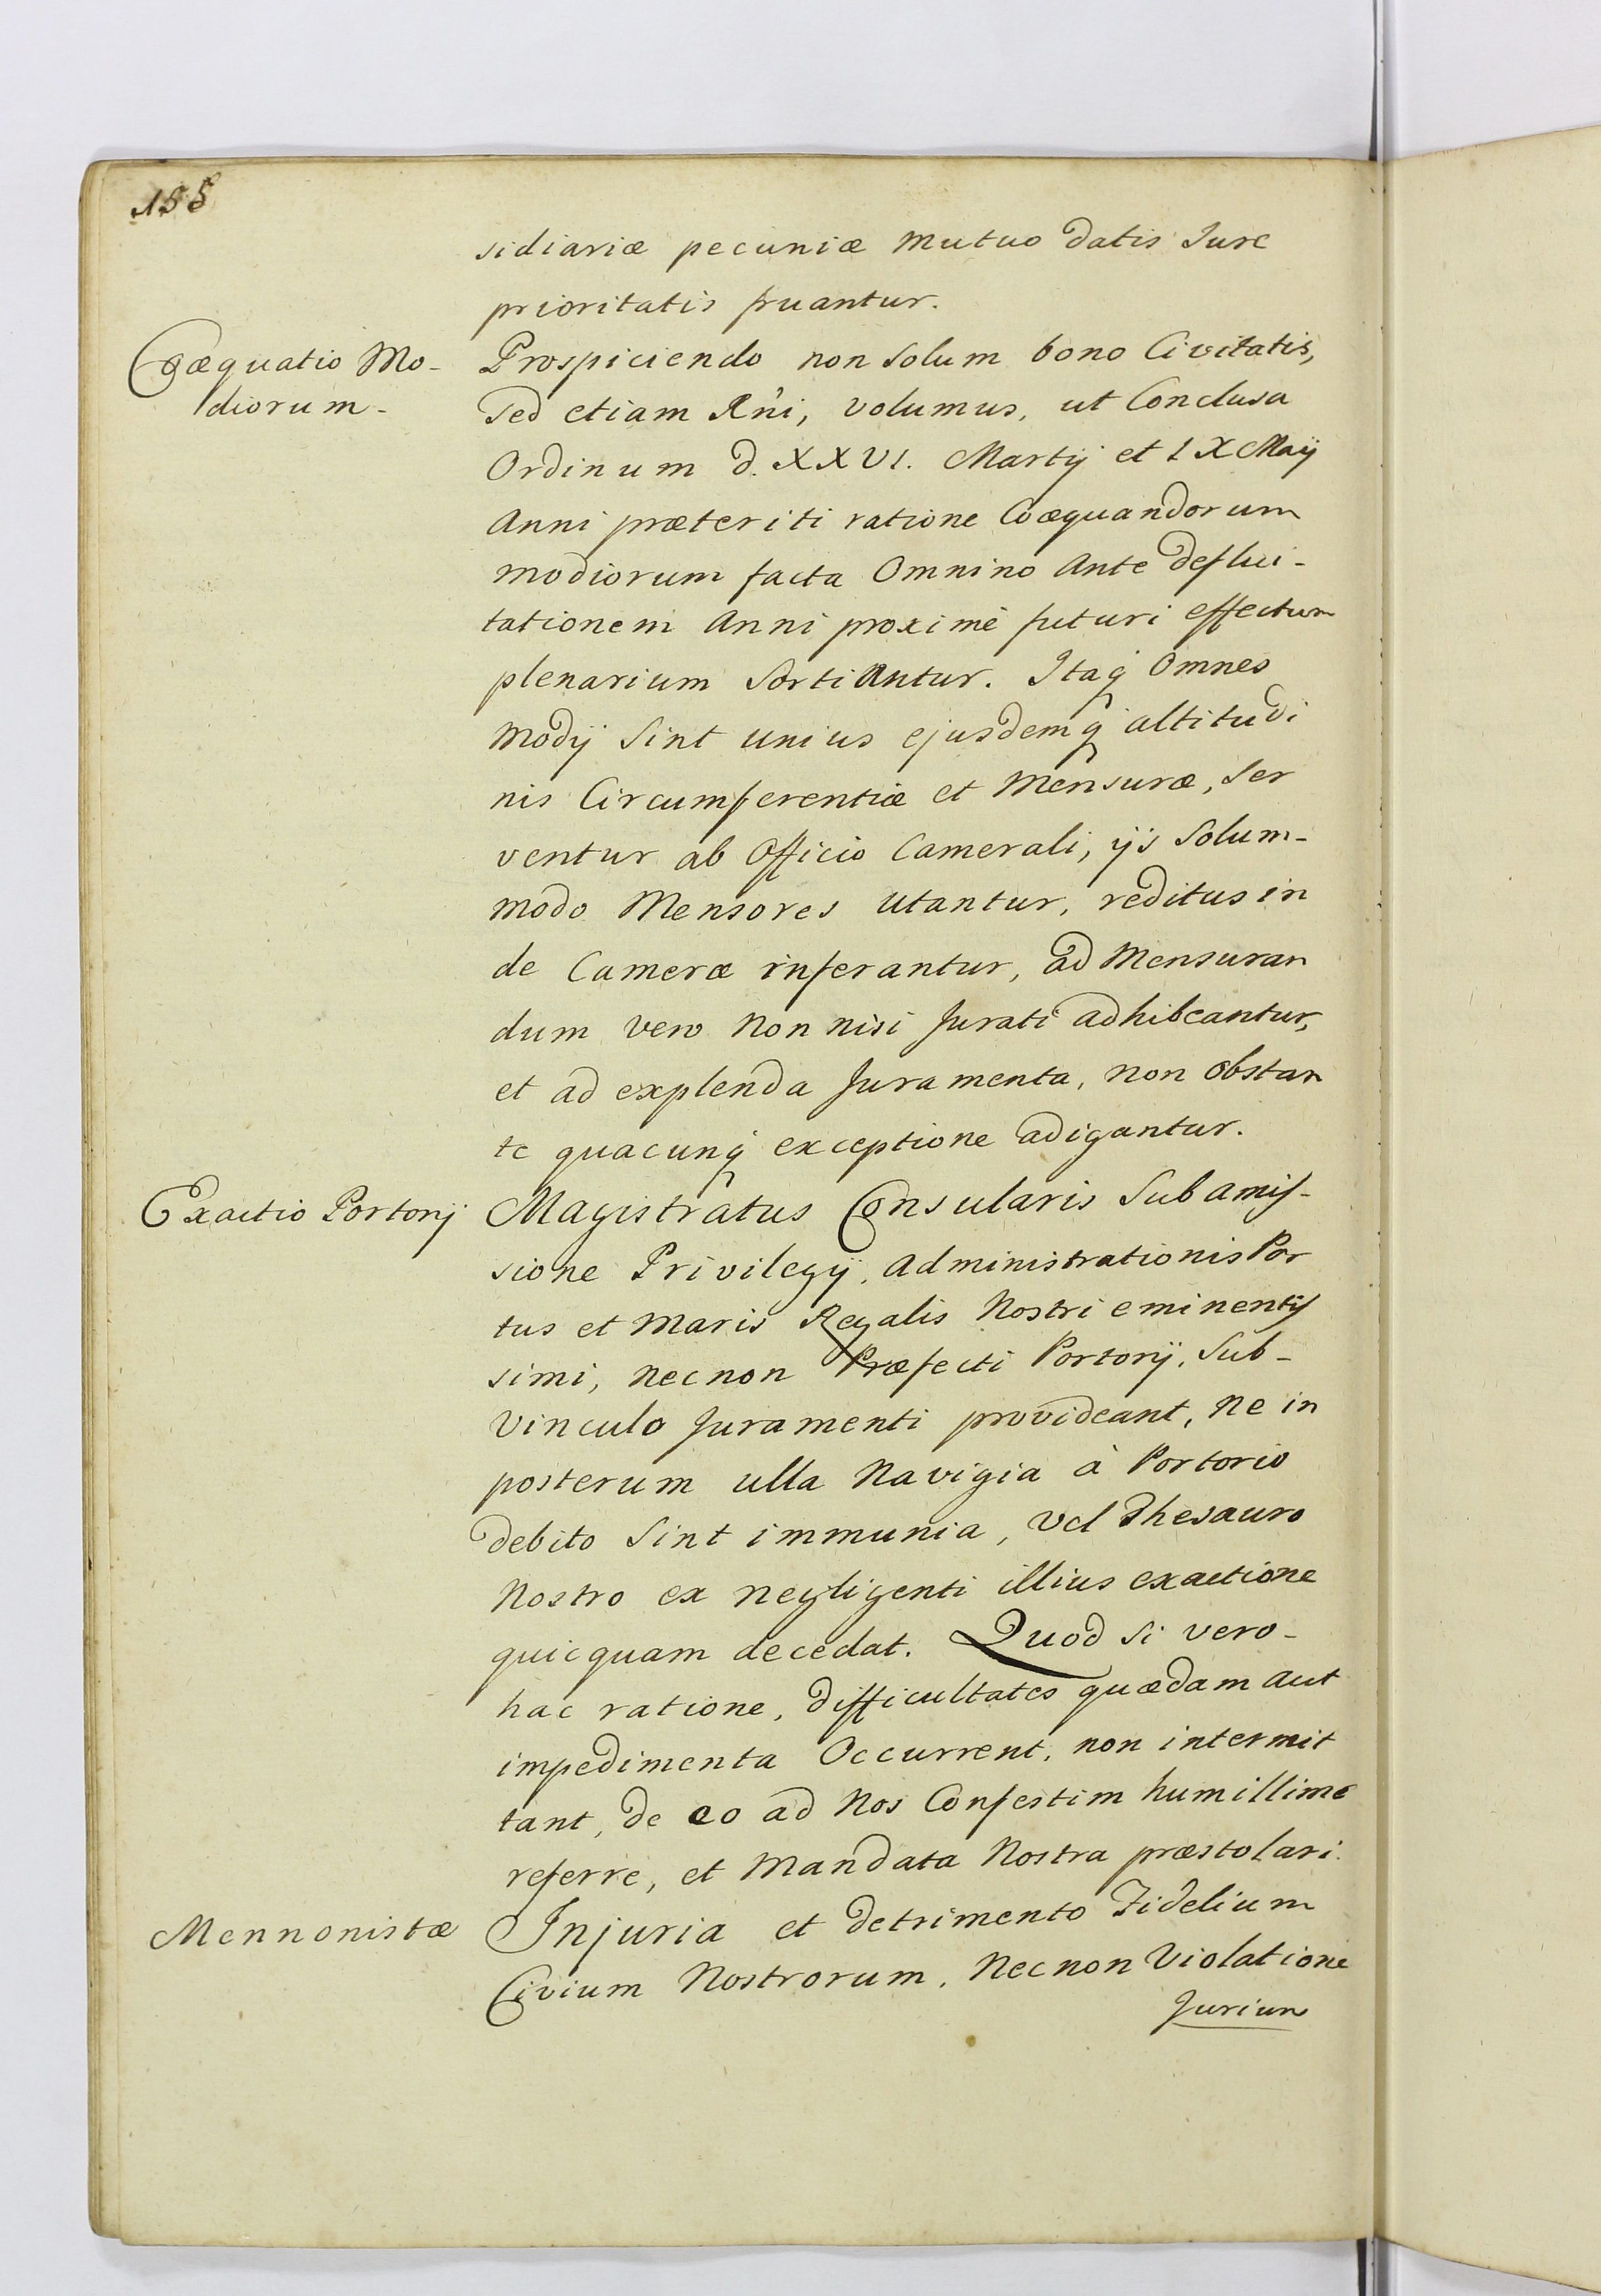 155
sidiariæ pecuniæ mutuo datis Jure
prioritatis fruantur.
Coæquatio Mo-
diorum-
Prospiciendo non solum bono Civitatis,
Sed etiam Rñi, volumus, ut Conclusa
Ordinum d. XXVI. Martij et IX Maij
Anni præteriti ratione Coæquandorum
modiorum facta Omnino Ante deflui-
tationem Anni proximè futuri effectum
plenarium Sortiantur. Itaq̃ Omnes
Modij Sint unius ejusdemq̃ altitudi
nis Circumferentiæ et Mensuræ, Ser
ventur ab Officio Camerali, ijs Solum-
modo Mensores Utantur, reditus in
de Cameræ inferantur, ad Mensuran
dum vero Non nisi Jurati adhibeantur,
et ad explenda Juramenta, non Obstan
te quacunq̃ exceptione adigantur.
Exactio Portorij
Magistratus Consularis Sub amis-
sione Privilegij, Administrationis Por
tus et Maris Regalis Nostri eminentis
simi, Nec non Præfecti Portorij, Sub-
Vinculo Juramenti provideant, Ne in
posterum ulla Navigia à Portorio
debito Sint immunia, Vel Thesauro
Nostro ex Negligenti illius exactione
quicquam decedat. Quod si vero-
hac ratione, difficultates quædam aut
impedimenta Occurrent, non intermit
tant, de eo ad Nos Confestim humillime
referre, et Mandata Nostra præstolari.
Mennonistæ
Injuria et detrimento Fidelium
Civium Nostrorum, Nec non Violatione
Jurium